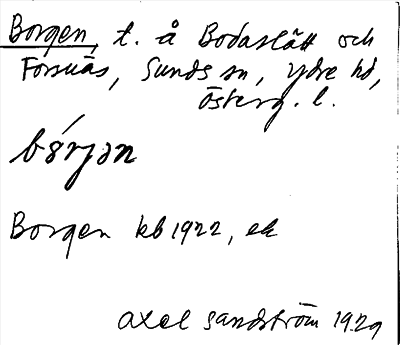 Borgen, t. å Bodaslätt och
Forsnäs, Sunds sn, Ydre hd,
Österg. l.
bórjən
Borgen kb 1922, ek
Axel Sandström 1929